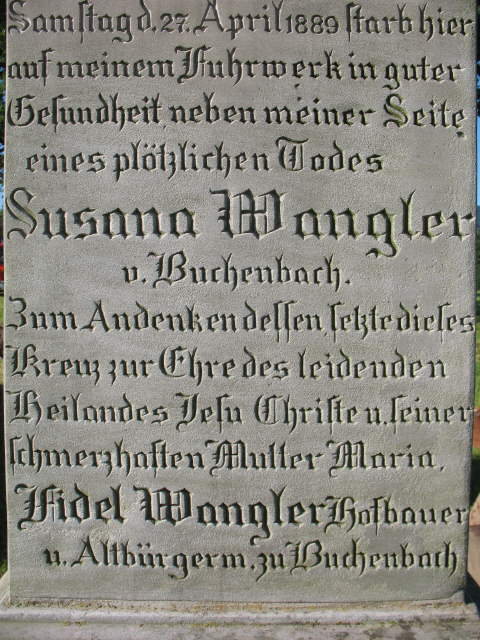 Samstag d. 27. April 1889 starb hier
auf meinem Fuhrwerk in guter
Gesundheit neben meiner Seite
eines plötzlichen Todes
Susana Wangler
v. Buchenbach.
Zum Andenken dessen setzte dieses
Kreuz zur Ehre des leidenden
Heilandes Jesu Christe u. seiner
schmerzhaften Mutter Maria,
Fidel Wangler Hofbauer
u. Altbürgerm. zu Buchenbach